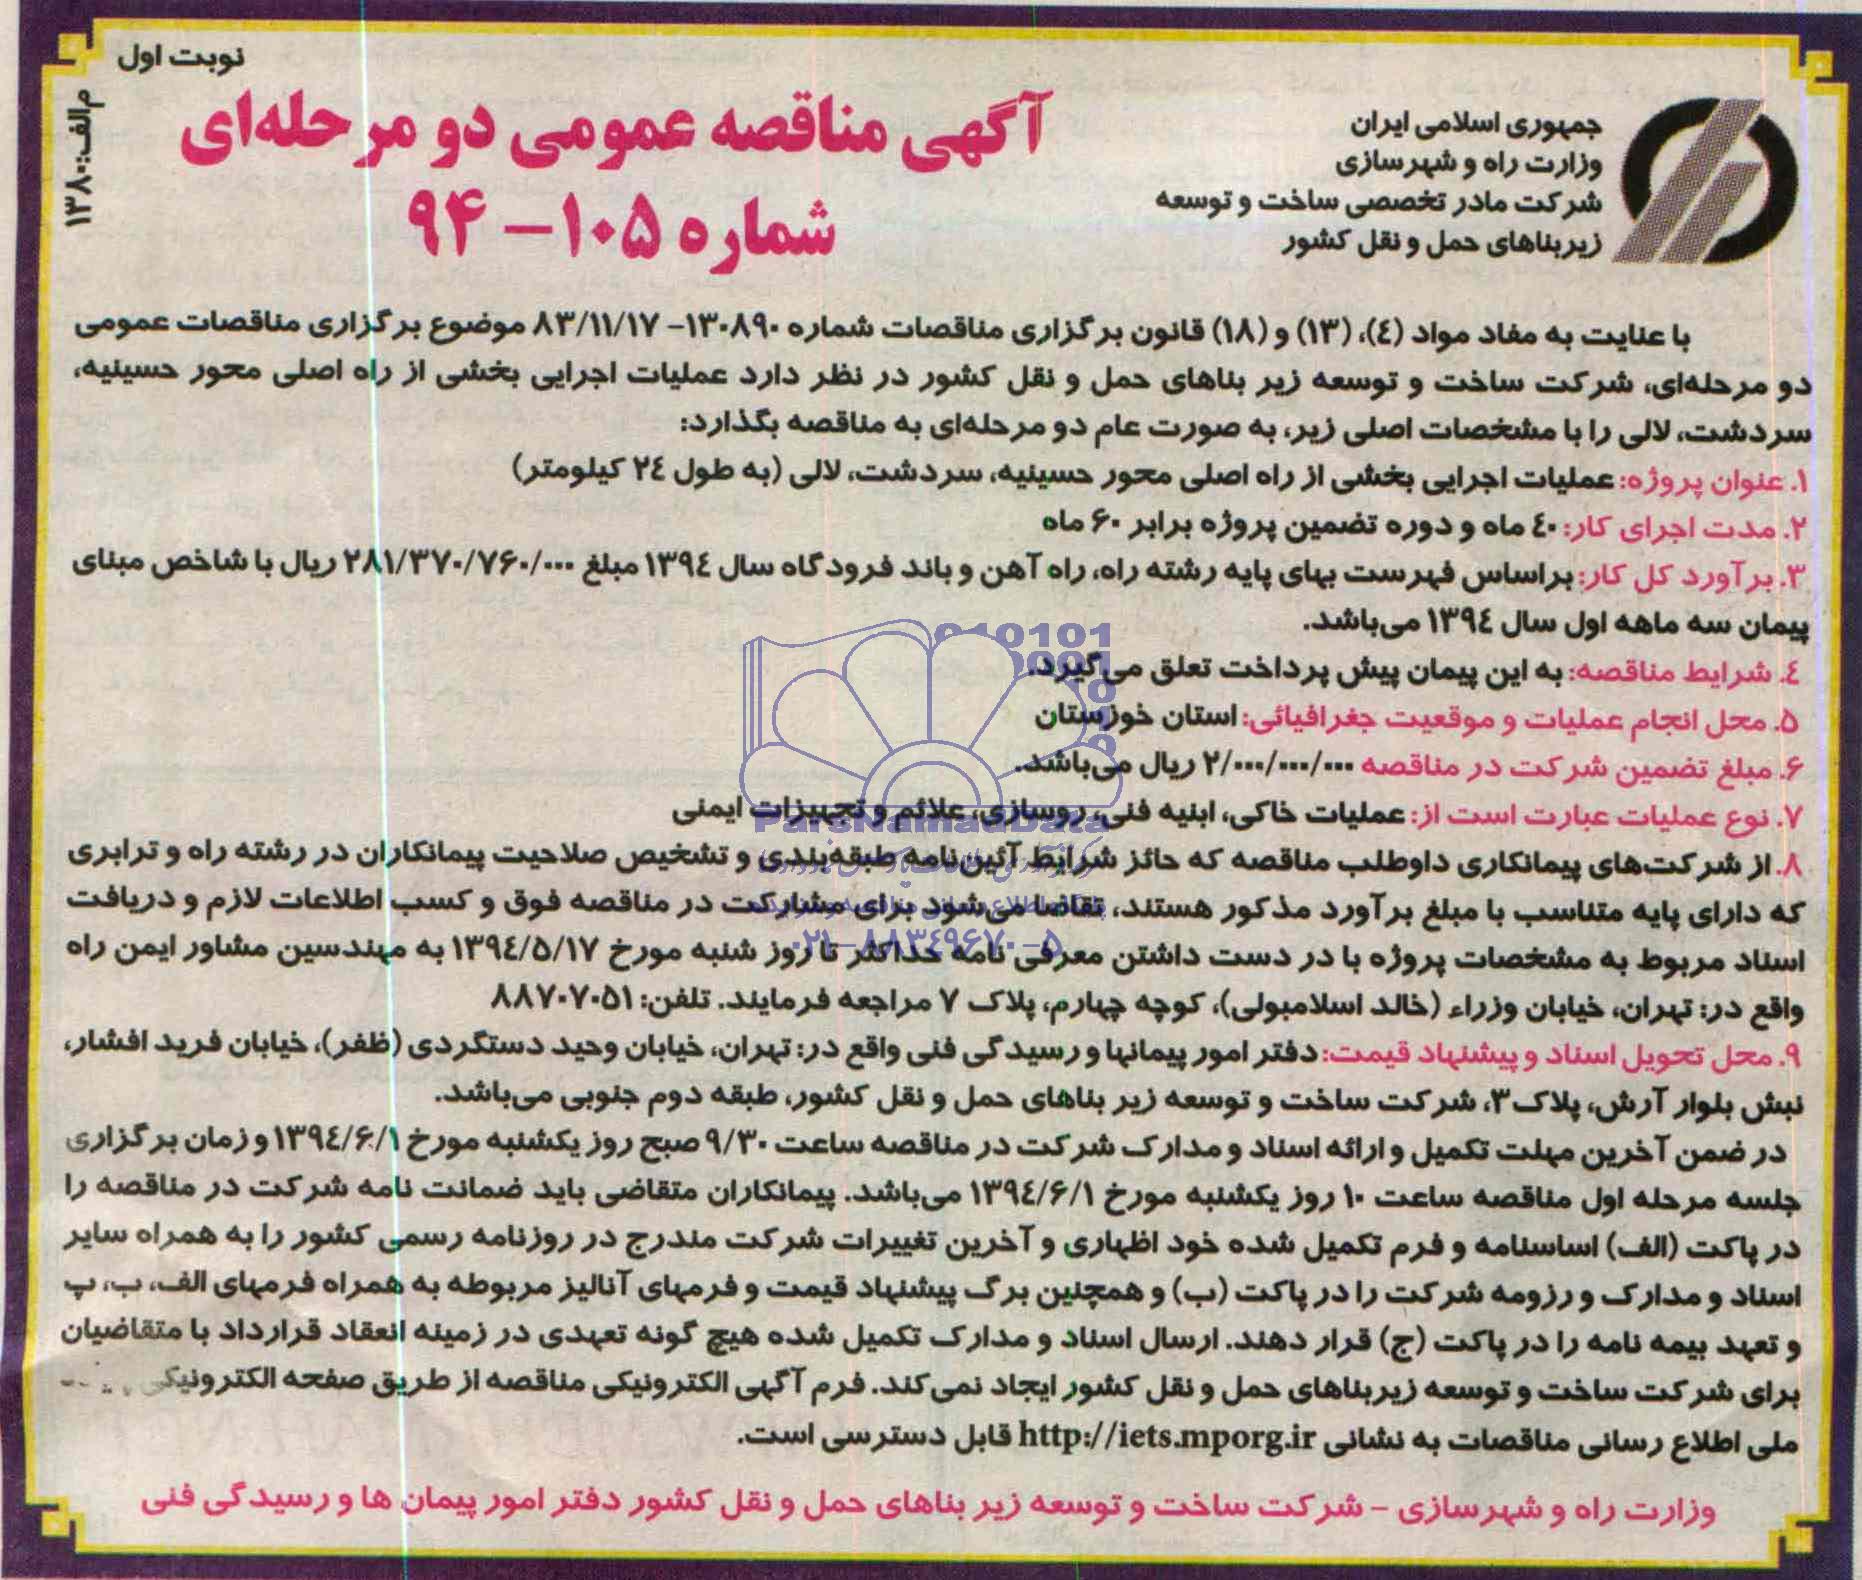 نوبت اول
م‌الف: ۱۳۸۰
جمهوری اسلامی ایران
وزارت راه و شهرسازی
شرکت مادر تخصصی ساخت و توسعه
زیربناهای حمل و نقل کشور
آگهی مناقصه عمومی دو مرحله‌ای
شماره ۱۰۵-۹۴
با عنایت به مفاد مواد (٤)، (۱۳) و (۱۸) قانون برگزاری مناقصات شماره ۱۳۰۸۹۰- ۸۳/۱۱/۱۷ موضوع برگزاری مناقصات عمومی
دو مرحله‌ای، شرکت ساخت و توسعه زیر بناهای حمل و نقل کشور در نظر دارد عملیات اجرایی بخشی از راه اصلی محور حسینیه،
سردشت، لالی را با مشخصات اصلی زیر، به صورت عام دو مرحله‌ای به مناقصه بگذارد:
۱. عنوان پروژه: عملیات اجرایی بخشی از راه اصلی محور حسینیه، سردشت، لالی (به طول ۲٤ کیلومتر)
۲. مدت اجرای کار: ٤۰ ماه و دوره تضمین پروژه برابر ۶۰ ماه
۳. برآورد کل کار: براساس فهرست بهای پایه رشته راه، راه آهن و باند فرودگاه سال ۱۳۹٤ مبلغ ۲۸۱/۳۷۰/۷۶۰/۰۰۰ ریال با شاخص مبنای
پیمان سه ماهه اول سال ۱۳۹٤ می‌باشد.
٤. شرایط مناقصه: به این پیمان پیش پرداخت تعلق می‌گیرد.
۵. محل انجام عملیات و موقعیت جغرافیائی: استان خوزستان
۶. مبلغ تضمین شرکت در مناقصه ۲/۰۰۰/۰۰۰/۰۰۰ ریال می‌باشد.
۷. نوع عملیات عبارت است از: عملیات خاکی، ابنیه فنی، روسازی، علائم و تجهیزات ایمنی
ParsNamadData
۸. از شرکت‌های پیمانکاری داوطلب مناقصه که حائز شرایط آئین‌نامه طبقه‌بندی و تشخیص صلاحیت پیمانکاران در رشته راه و ترابری
که دارای پایه متناسب با مبلغ برآورد مذکور هستند، تقاضا می‌شود برای مشارکت در مناقصه فوق و کسب اطلاعات لازم و دریافت
۰۲۱-۸۸۳٤۹۶۷۰-۵
اسناد مربوط به مشخصات پروژه با در دست داشتن معرفی نامه حداکثر تا روز شنبه مورخ ۱۳۹٤/۵/۱۷ به مهندسین مشاور ایمن راه
واقع در: تهران، خیابان وزراء (خالد اسلامبولی)، کوچه چهارم، پلاک ۷ مراجعه فرمایند. تلفن: ۸۸۷۰۷۰۵۱
۹. محل تحویل اسناد و پیشنهاد قیمت: دفتر امور پیمانها و رسیدگی فنی واقع در: تهران، خیابان وحید دستگردی (ظفر)، خیابان فرید افشار،
نبش بلوار آرش، پلاک ۳، شرکت ساخت و توسعه زیر بناهای حمل و نقل کشور، طبقه دوم جنوبی می‌باشد.
در ضمن آخرین مهلت تکمیل و ارائه اسناد و مدارک شرکت در مناقصه ساعت ۹/۳۰ صبح روز یکشنبه مورخ ۱۳۹٤/۶/۱ و زمان برگزاری
جلسه مرحله اول مناقصه ساعت ۱۰ روز یکشنبه مورخ ۱۳۹٤/۶/۱ می‌باشد. پیمانکاران متقاضی باید ضمانت نامه شرکت در مناقصه را
در پاکت (الف) اساسنامه و فرم تکمیل شده خود اظهاری و آخرین تغییرات شرکت مندرج در روزنامه رسمی کشور را به همراه سایر
اسناد و مدارک و رزومه شرکت را در پاکت (ب) و همچنین برگ پیشنهاد قیمت و فرمهای آنالیز مربوطه به همراه فرمهای الف، ب، پ
و تعهد بیمه نامه را در پاکت (ج) قرار دهند. ارسال اسناد و مدارک تکمیل شده هیچ گونه تعهدی در زمینه انعقاد قرارداد با متقاضیان
برای شرکت ساخت و توسعه زیربناهای حمل و نقل کشور ایجاد نمی‌کند. فرم آگهی الکترونیکی مناقصه از طریق صفحه الکترونیکی
ملی اطلاع رسانی مناقصات به نشانی http://iets.mporg.ir قابل دسترسی است.
وزارت راه و شهرسازی - شرکت ساخت و توسعه زیر بناهای حمل و نقل کشور دفتر امور پیمان ها و رسیدگی فنی